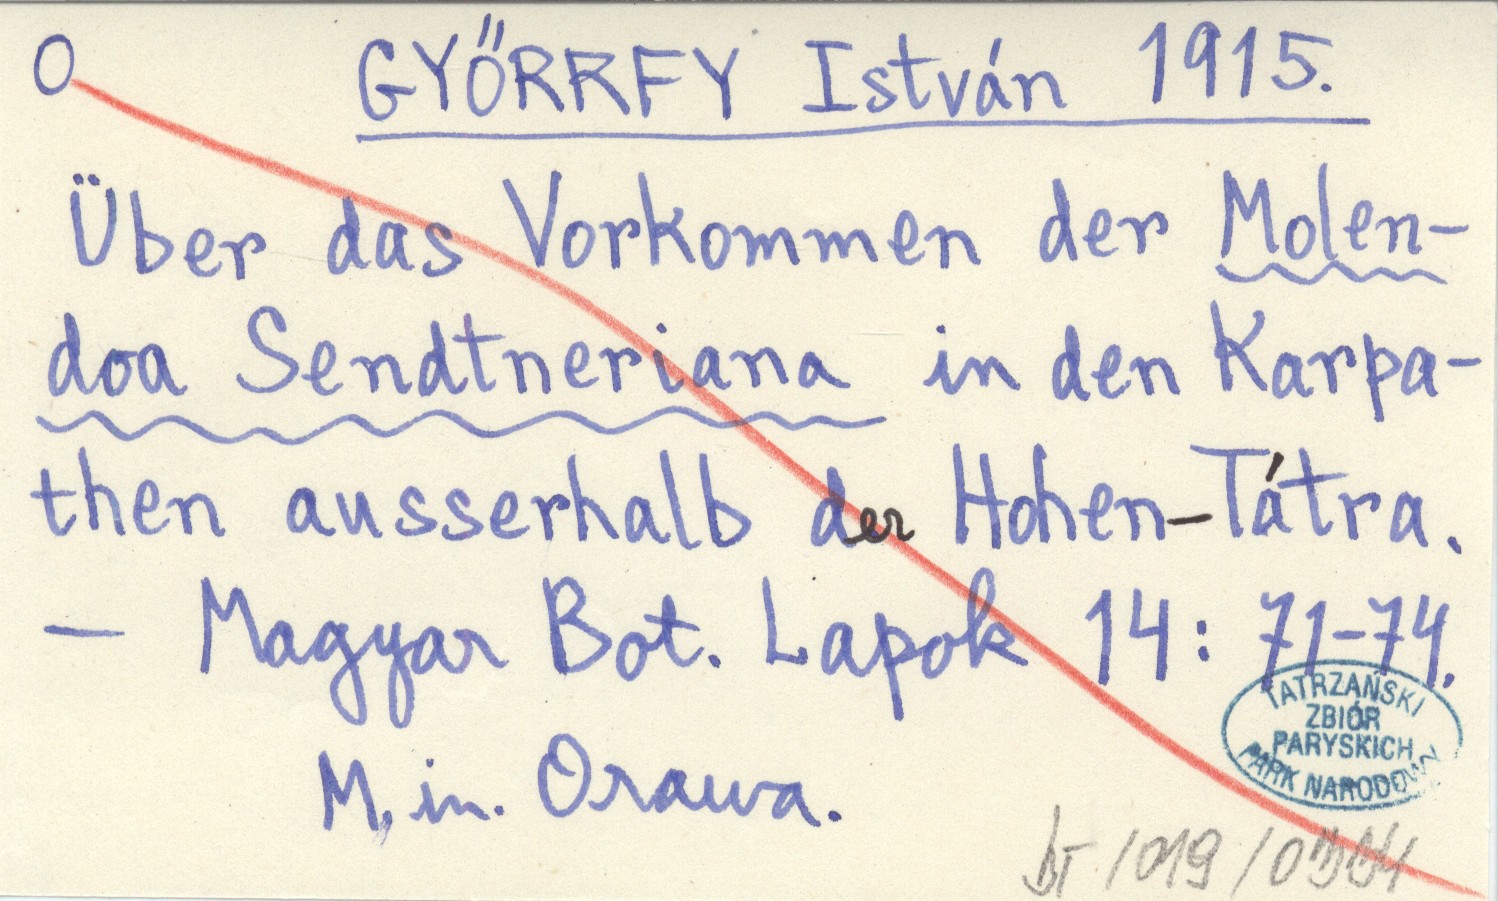 O GYŐRRFY István 1915.
Über das Vorkommen der Molen-
doa Sendtneriana in den Karpa-
then ausserhalb der Hohen-Tátra.
— Magyar Bot. Lapok 14: 71-74.
M. in. Orawa.
TATRZAŃSKI
ZBIÓR
PARYSKICH
PARK NARODOWY
/019/